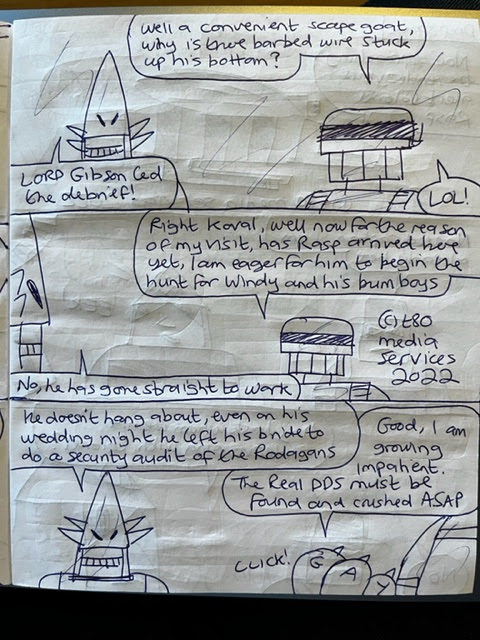 Well a convenient scape goat,
why is there barbed wire stuck
up his bottom?
LORD Gibson led
the debrief!
LOL!
Right Koval, well now for the reason
of my visit, has Rasp arrived here
yet, I am eager for him to begin the
hunt for Windy and his bum boys
(C) t80
media
services
2022
No, he has gone straight to work
he doesn't hang about, even on his
wedding night he left his bride to
do a security audit of the Rodagans
Good, I am
growing
impatient.
The Real DDS must be
found and crushed ASAP
CLICK!
G A Y